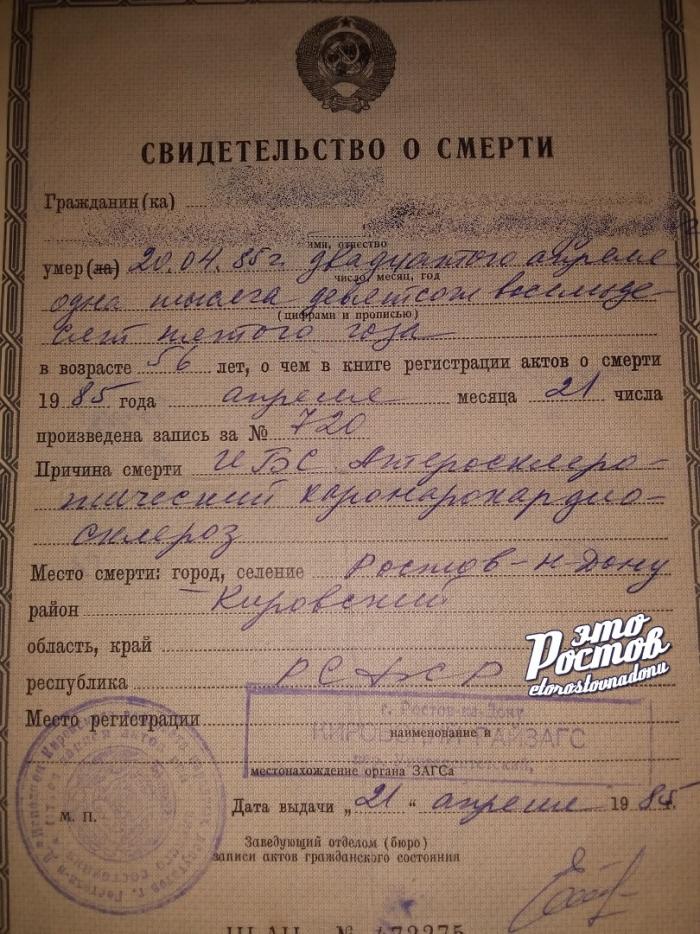 СВИДЕТЕЛЬСТВО О СМЕРТИ
Гражданин(ка)
имя, отчество
умер(ла) 20.04.85г двадцатого апреля
число, месяц, год
одна тысяча девятсот восемьде-
(цифрами и прописью)
сят пятого года
в возрасте 56 лет, о чем в книге регистрации актов о смерти
1985 года апреля месяца 21 числа
произведена запись за № 720
Причина смерти ИБС. Атеросклеро-
тический коронарокардио-
склероз
Место смерти: город, селение Ростов-н-Дону
район Кировский
область, край
республика РСФСР
это
Ростов
etorostovnadonu
Место регистрации
г. Ростов-на-Дону
наименование и
КИРОВСКИЙ РАЙЗАГС
местонахождение органа ЗАГСа
М. П.
Дата выдачи „21“ апреля 1985г.
Заведующий отделом (бюро)
записи актов гражданского состояния